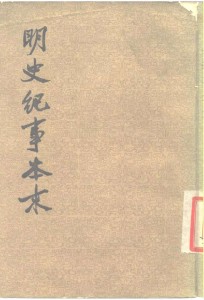 明史紀事本末